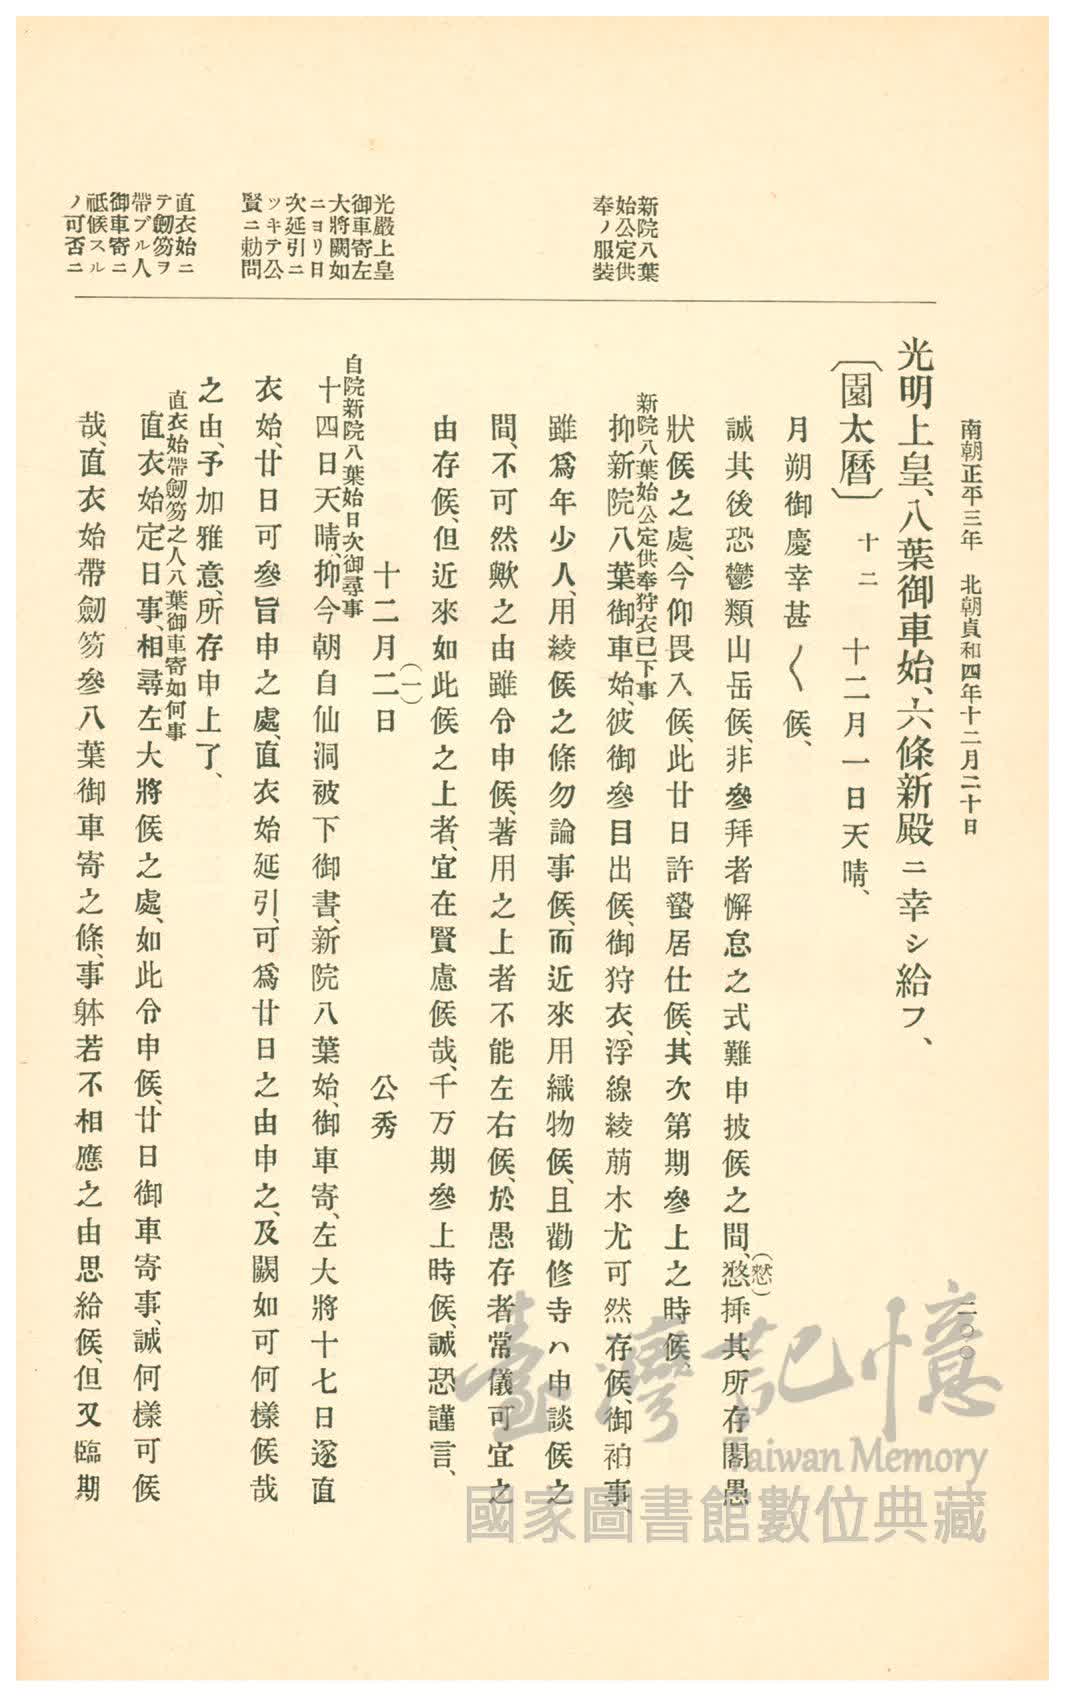 南朝正平三年 北朝貞和四年十二月二十日
二〇〇
光明上皇、八葉御車始、六條新殿ニ幸シ給フ、
〔園太曆〕 十二 十二月一日天晴、
月朔御慶幸甚〱候、
誠其後恐鬱類山岳候、非參拜者懈怠之式難申披候之間、愗(憖)揷其所存閣愚
狀候之處、今仰畏入候、此廿日許蟄居仕候、其次第期參上之時候、
新院八葉始公定供奉狩衣已下事
抑新院八葉御車始、彼御參目出候、御狩衣、浮線綾萠木尤可然存候、御袙事、
雖爲年少人、用綾候之條勿論事候、而近來用織物候、且勸修寺ハ申談候之
間、不可然歟之由雖令申候、著用之上者不能左右候、於愚存者常儀可宜之
由存候、但近來如此候之上者、宜在賢慮候哉、千万期參上時候、誠恐謹言、
十二月二(一)日 公秀
自院新院八葉始日次御尋事
十四日天晴、抑今朝自仙洞被下御書、新院八葉始、御車寄、左大將十七日遂直
衣始、廿日可參旨申之處、直衣始延引、可爲廿日之由申之、及闕如可何樣候哉
之由、予加雅意、所存申上了、
直衣始帶劒笏之人八葉御車寄如何事
直衣始定日事、相尋左大將候之處、如此令申候、廿日御車寄事、誠何樣可候
哉、直衣始帶劒笏參八葉御車寄之條、事躰若不相應之由思給候、但又臨期
新院八葉
始公定供
奉ノ服裝
光嚴上皇
御車寄左
大將闕如
ニヨリ日
次延引ニ
ツキテ公
賢ニ勅問
直衣始ニ
テ劒笏ヲ
帶ブル人
御車寄ニ
祗候スル
ノ可否ニ
臺灣記憶
Taiwan Memory
國家圖書館數位典藏